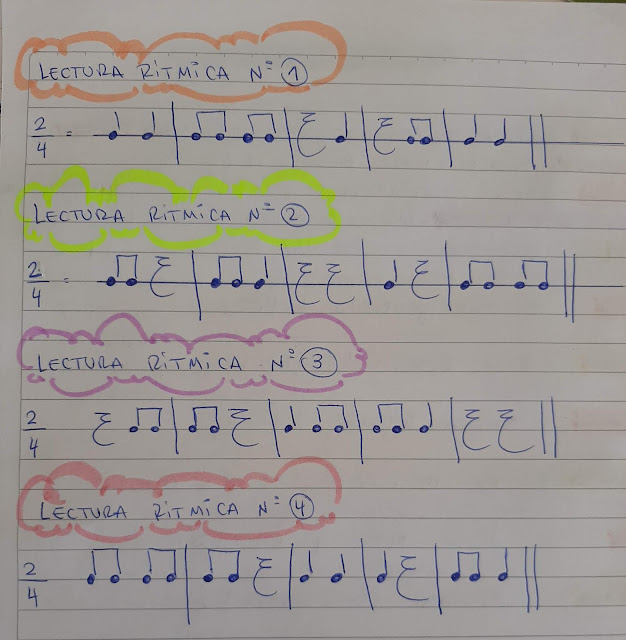 LECTURA RÍTMICA Nº 1
2
4
LECTURA RÍTMICA Nº 2
2
4
LECTURA RÍTMICA Nº 3
2
4
LECTURA RÍTMICA Nº 4
2
4